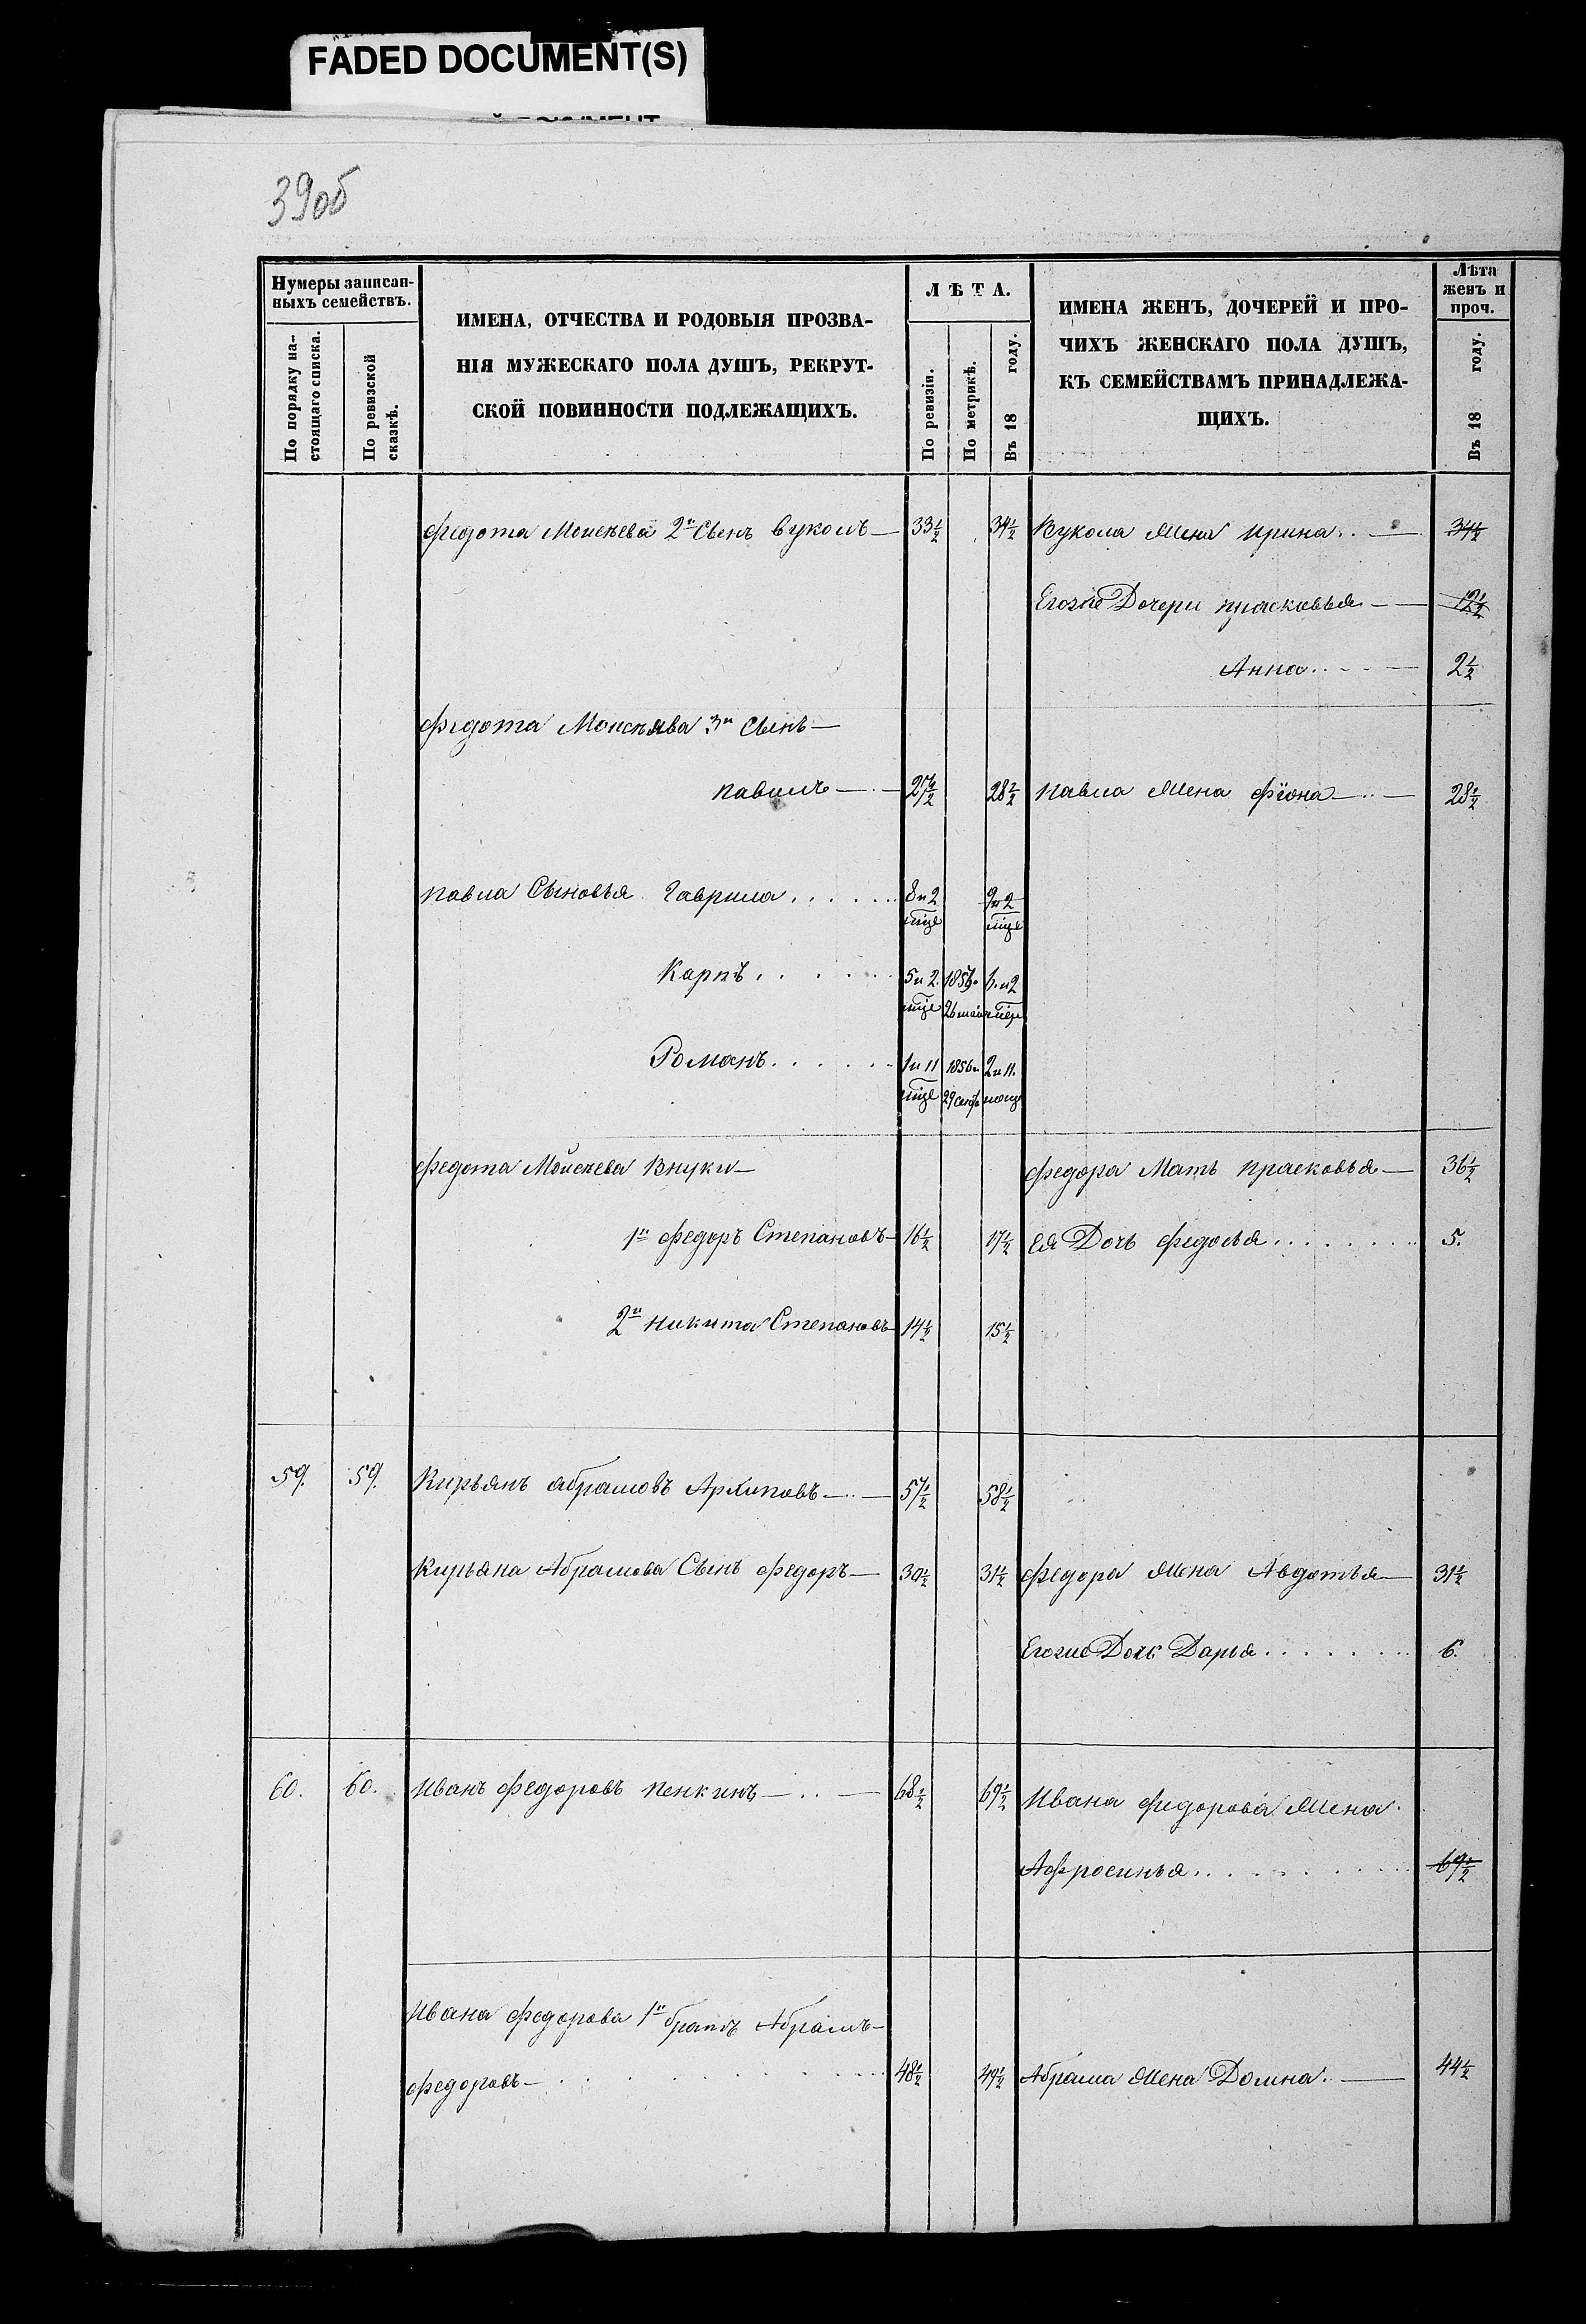 FADED DOCUMENT(S)
39об
Нумеры записан-
ныхъ семействъ.
По порядку на-
стоящаго списка.
По ревизской
сказкѣ.
ИМЕНА, ОТЧЕСТВА И РОДОВЫЯ ПРОЗВА-
НІЯ МУЖЕСКАГО ПОЛА ДУШЪ, РЕКРУТ-
СКОЙ ПОВИННОСТИ ПОДЛЕЖАЩИХЪ.
ЛѢТА.
По ревизіи.
По метрикѣ.
Въ 18 году.
ИМЕНА ЖЕНЪ, ДОЧЕРЕЙ И ПРО-
ЧИХЪ ЖЕНСКАГО ПОЛА ДУШЪ,
КЪ СЕМЕЙСТВАМЪ ПРИНАДЛЕЖА-
ЩИХЪ.
Лѣта
женъ и
проч.
Въ 18 году.
Федота Моисѣева 2й Сынъ Вуколъ — 33½ 34½ Вукола Жена Ирина — 34½
Егоже Дочери Прасковья — 12½
Анна — 2½
Федота Моисѣева 3й Сынъ —
Павелъ — 27½ 28½ Павла Жена Фіона — 28½
Павла Сыновья Гаврила 8 и 2 9 и 2
мѣце мѣце
Карпъ 5 и 2 6 и 2
мѣце 26 мая мѣце
Романъ 1 и 11 1856 2 и 11
мѣце 29 сент мѣсяц
Федота Моисеева Внуки — Федора Мать Прасковья — 36½
1й Федоръ Степановъ 16½ 17½ Ея Дочь Федосья 5.
2й Никита Степановъ 14½ 15½
59. 59. Кирьянъ Абрамовъ Архиповъ — 57½ 58½
Кирьяна Абрамова Сынъ Федоръ — 30½ 31½ Федора Жена Авдотья — 31½
Егоже Дочь Дарья 6.
60. 60. Иванъ Федоровъ Пенкинъ — 68½ 69½ Ивана Федорова Жена
Афросинья 69½
Ивана Федорова 1й братъ Абрамъ —
Федоровъ — 48½ 49½ Абрама Жена Домна — 44½